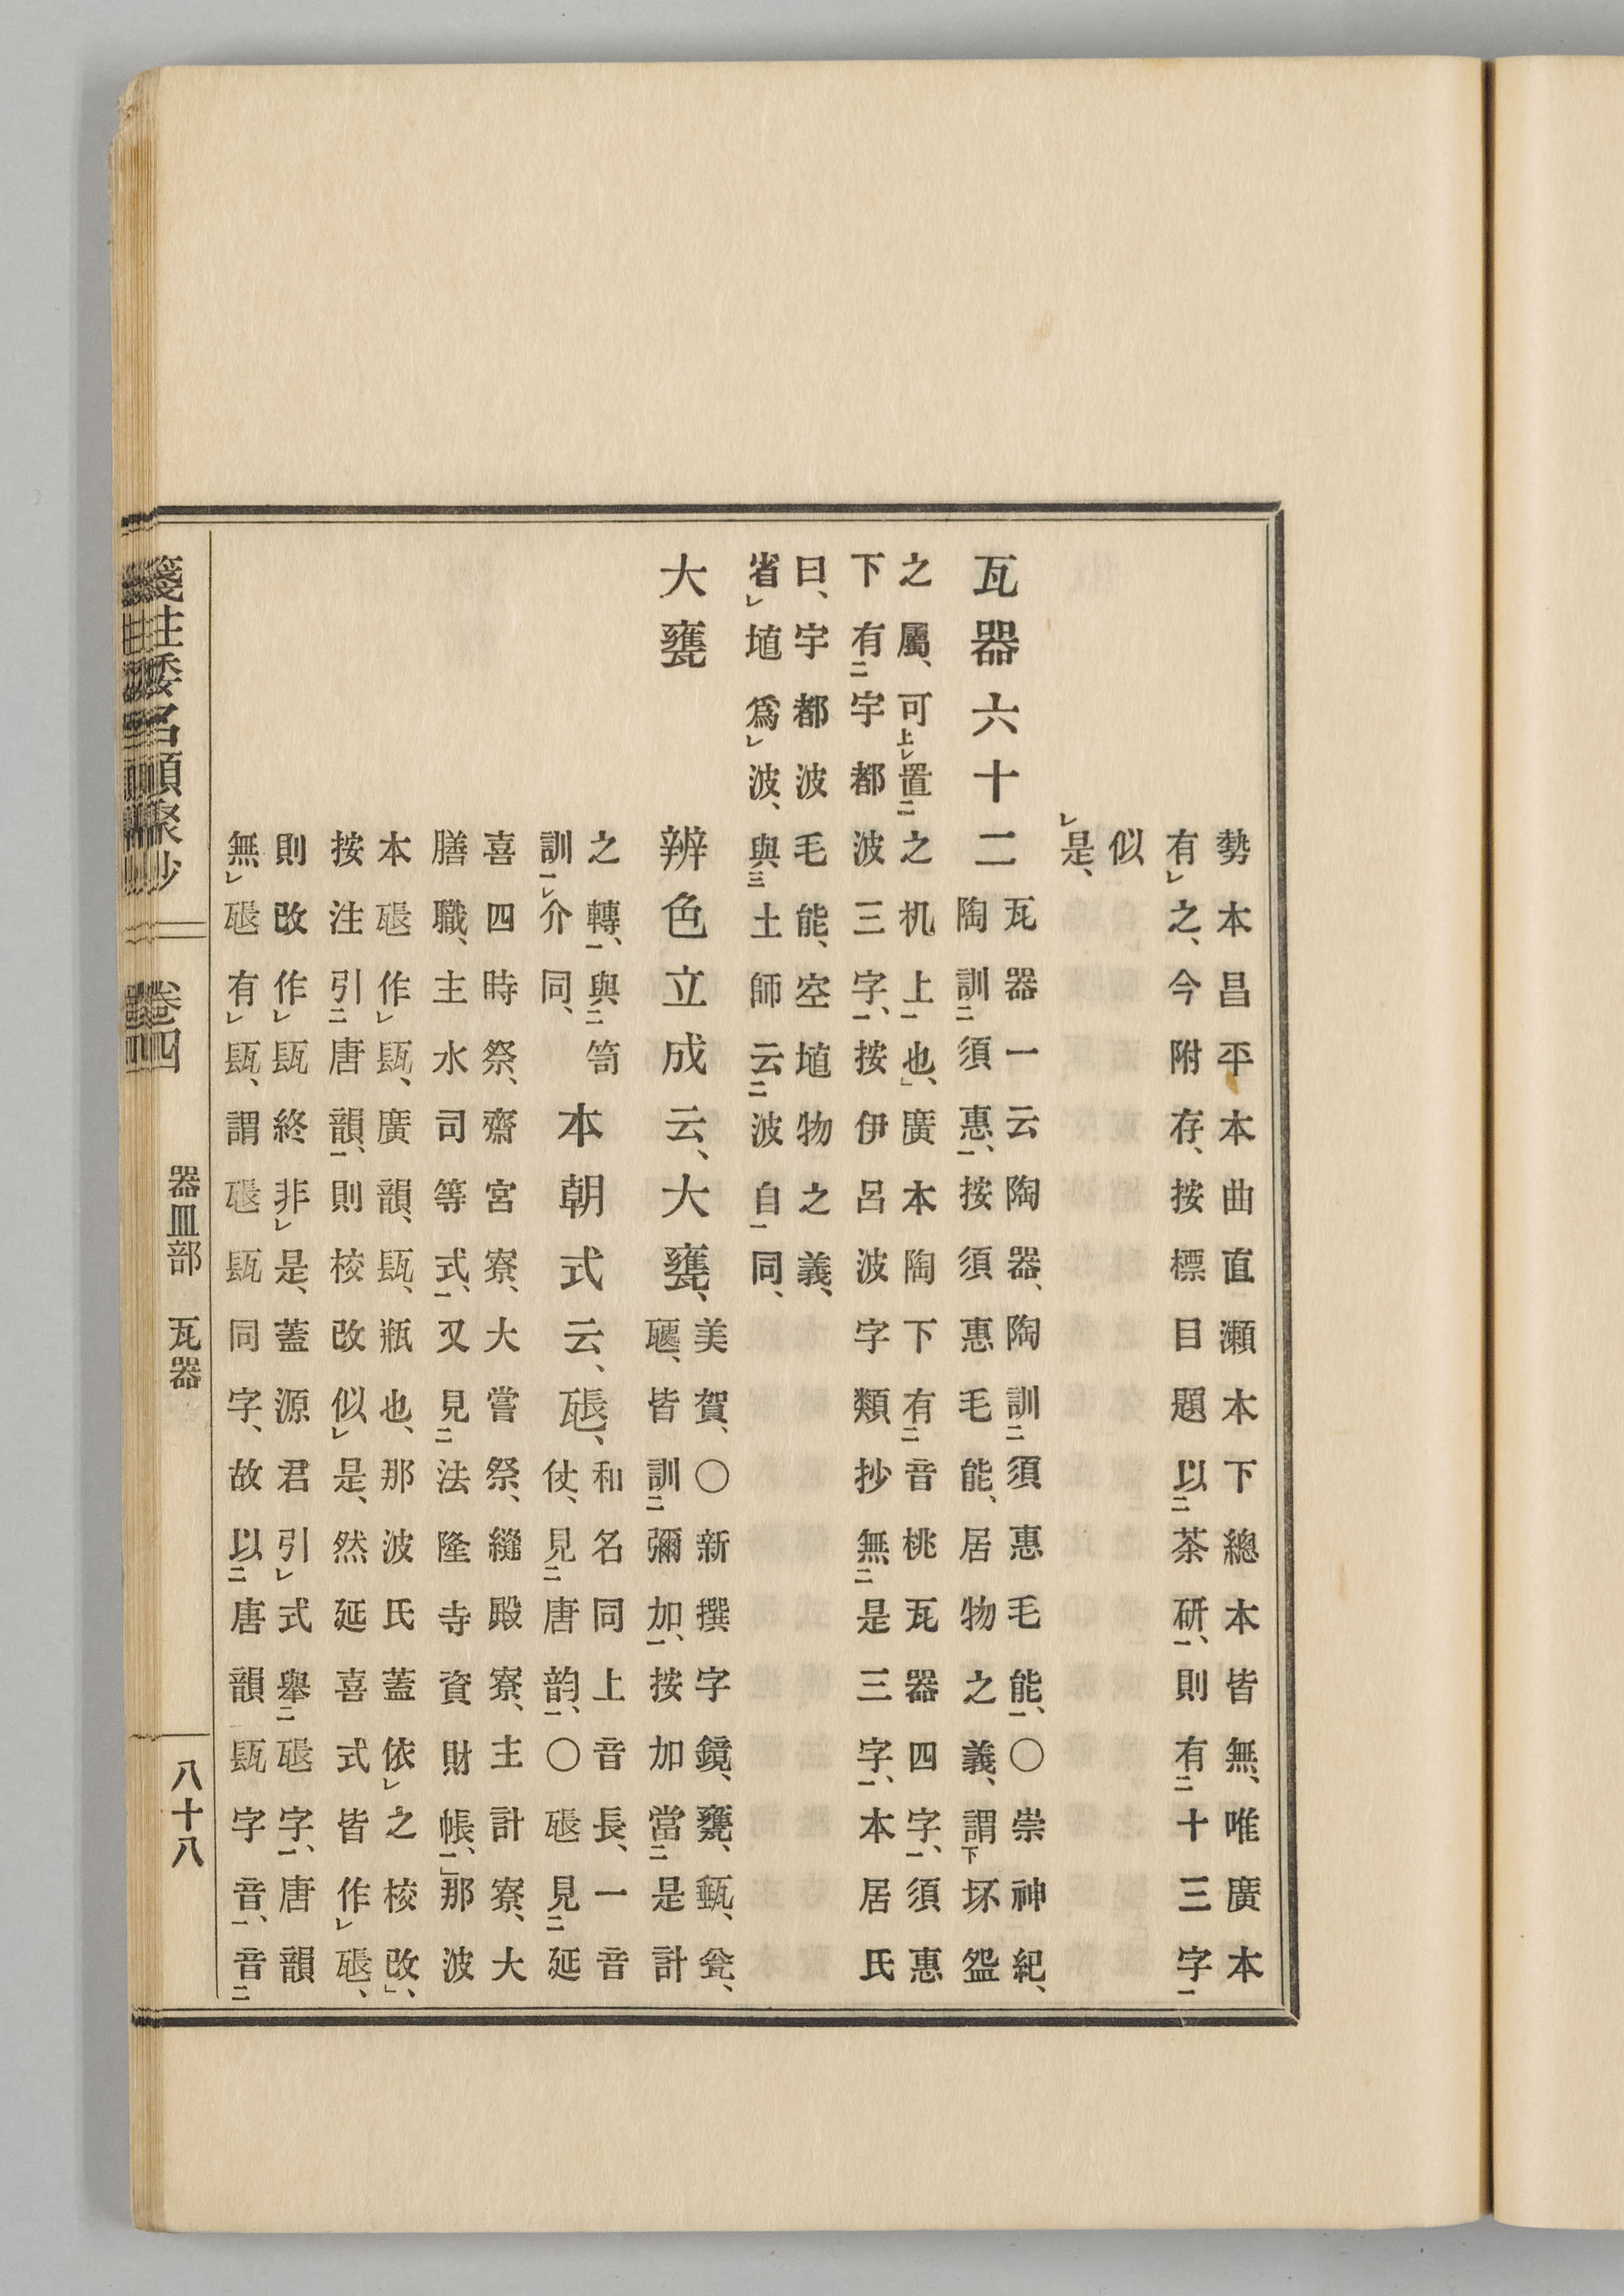 勢本昌平本曲直瀬本下總本皆無、唯廣本
有レ之、今附存、按標目題以二茶研一、則有二十三字一
似
レ是、
瓦器六十二
瓦器一云陶器、陶訓二須惠毛能一、○崇神紀、
陶訓二須惠一、按須惠毛能、居物之義、謂下坏盌
之屬、可上レ置二之机上一也」、廣本陶下有二音桃瓦器四字一、須惠
下有二宇都波三字一、按伊呂波字類抄無二是三字一、本居氏
曰、宇都波毛能、空埴物之義、
省レ埴爲レ波、與三土師云二波自一同、
大甕
辨色立成云、大甕、
美賀、○新撰字鏡、甕、瓮、
皆訓二彌加一、按加當二是計
之轉一、與二笥
訓一レ介同、
本朝式云、瓺、
和名同上音長、一音
仗、見二唐韵一、○瓺見二延
喜四時祭、齋宮寮、大嘗祭、縫殿寮、主計寮、大
膳職、主水司等式一、又見二法隆寺資財帳一」、那波
本瓺作レ瓺、廣韻、瓺、瓶也、那波氏蓋依レ之校改」、
按注引二唐韻一、則校改似レ是、然延喜式皆作レ瓺、
則改作レ瓺終非レ是、蓋源君引レ式舉二瓺字一、唐韻
無レ瓺有レ瓺、謂瓺瓺同字、故以二唐韻瓺字音一、音二
箋注倭名類聚抄 卷四 器皿部 瓦器 八十八